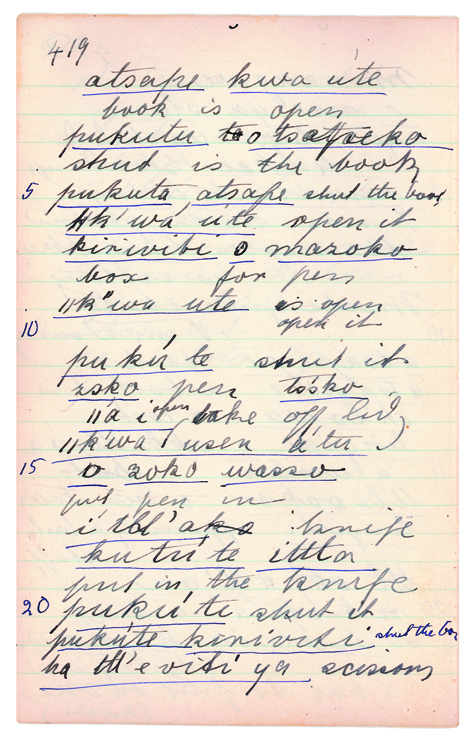 419
atsape kwa úte
book is open
pukutu o tsatseko
shut is the book
5 pukuta atsape shut the book
ǁk'wá ute open it
kiriwibi o mazoko
box for pen
ǁk"wa ute is open
10 open it
pukú te shut it
zoko pen tsóko
ǁá i open take off lid)
ǁk'wá usen á'tu
15 o zoko wasso
put pen in
knife
kutú te
put in the knife
20 pukú te shut it
pukúte kiriviti shut the box
ya scissors